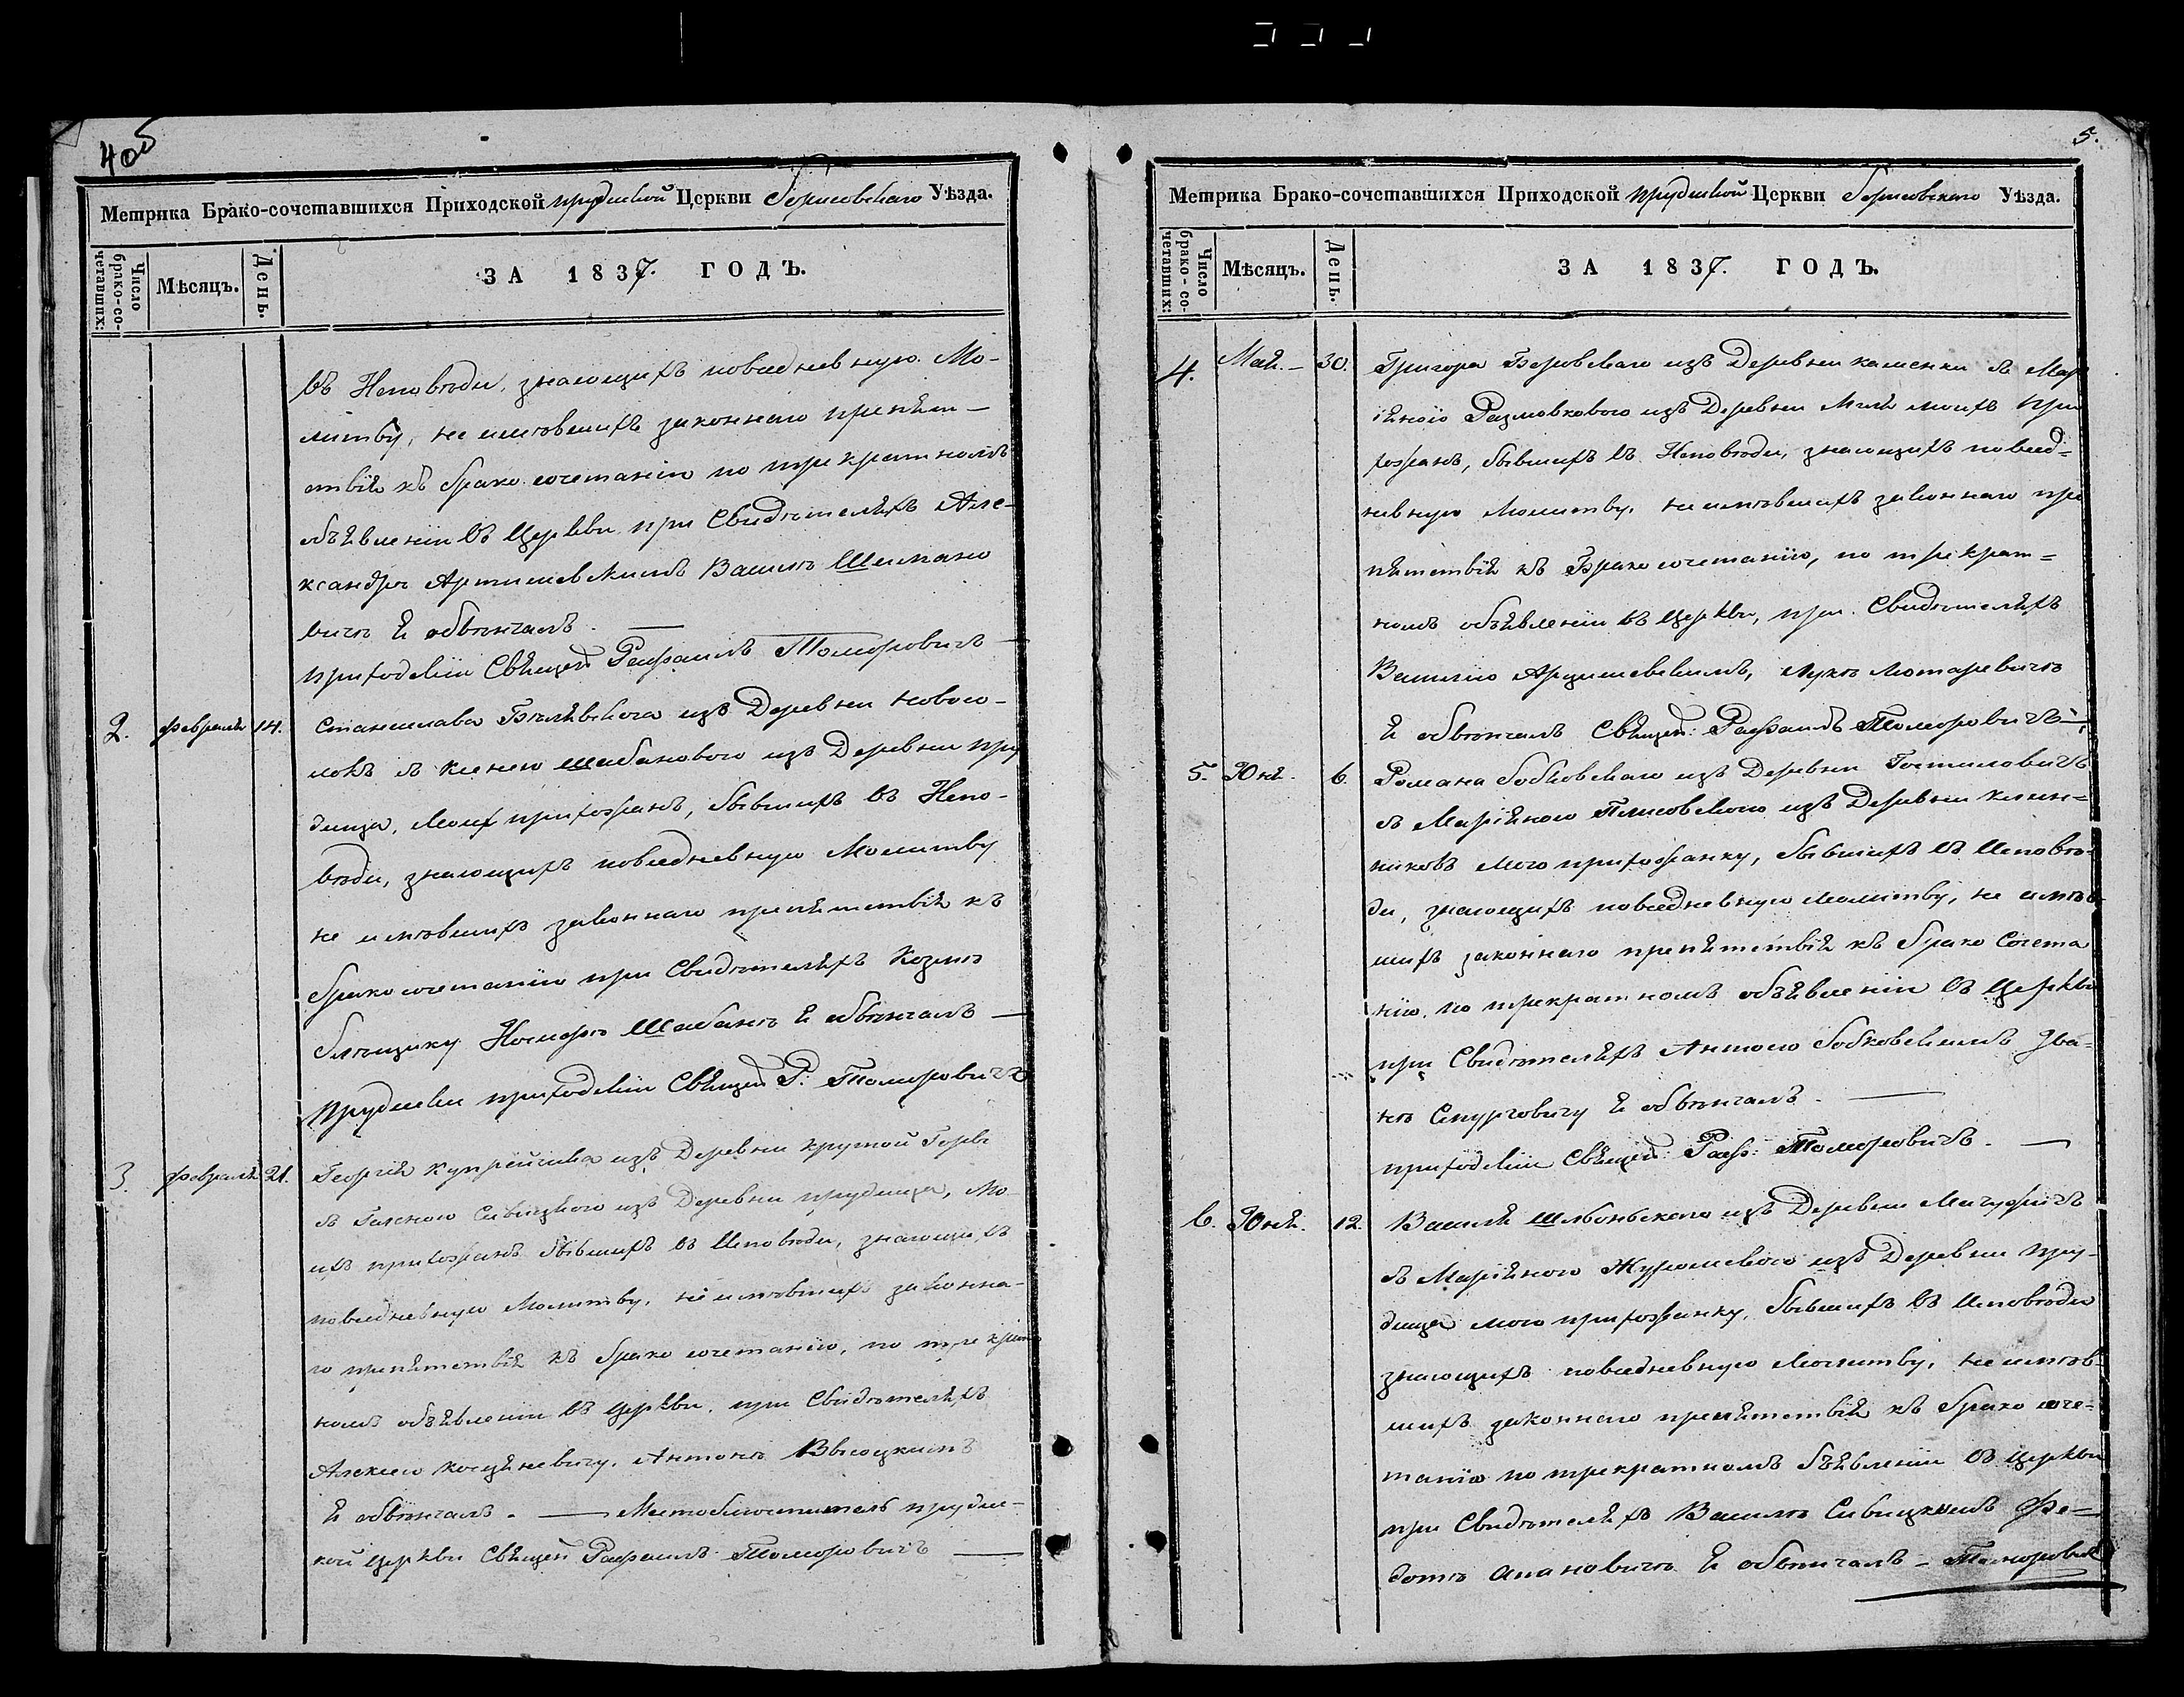 4об
Метрика Брако-сочетавшихся Приходской прудиской Церкви Борисовскаго Уѣзда.
Число брако-со-четавших:
Мѣсяцъ.
День.
ЗА 1837. ГОДЪ.
въ Исповѣди, знающихъ повседневную Мо-
литву, не имѣвшихъ законнаго препят-
ствія къ брако сочетанію по трекратномъ
объявленіи въ Церкви при Свидѣтеляхъ Але-
ксандрѣ Артишевскимъ Василѣ Шимано
вичѣ Я обвѣнчалъ. —
приходскій Свѣщен Рафаилъ Томоровичъ —
2. февраля 14. Станислава Бѣлявскога изъ Деревни Новосю-
локъ съ Шабановою изъ Деревни пру
дища, моих прихожанъ, бывшихъ въ Испо-
вѣди, знающихъ повседневную Молитву
не имѣвшихъ законнаго препятствія къ
Брако сочетанію при Свидѣтеляхъ Козмѣ
Шабанѣ Я обвѣнчалъ —
прудиски приходскій Свѣщен Р. Томоровичъ
3. февраля 21. Георгія изъ Деревни крутой Горы
съ Сивицкою изъ Деревни прудища, Мо-
ихъ прихожанъ бывшихъ въ Исповѣди, знающихъ
повседневную Молитву, не имѣвших законна-
го препятствія къ брако сочетанію, по трекрат
номъ объявленіи въ Церкви, при Свидѣтеляхъ
Алексѣю Антонѣ Высоцкимъ
Я обвѣнчалъ. — Местоблюститель прудис-
кой Церкви Свѣщен Рафаилъ Томоровичъ —
5.
Метрика Брако-сочетавшихся Приходской прудиской Церкви Борисовскаго Уѣзда.
Число брако-со-четавших:
Мѣсяцъ.
День.
ЗА 1837. ГОДЪ.
4. Мая. — 30. Григора Боровскаго изъ Деревни каменки съ Мар
іяною из Деревни моихъ при
хожанъ, бывшихъ въ Исповѣди, знающихъ повсед=
невную Молитву, не имѣвшихъ законнаго пре
пятствія къ Брако сочетанію, по трекрат=
номъ объявленіи въ Церкви, при Свидѣтеляхъ
Василію Арцишевскимъ,
Я обвѣнчалъ Свѣщен: Рафаилъ Томоровичъ —
5. Юня. 6. Романа Бобковскаго изъ Деревни Гостиловичъ
съ Маріяною изъ Деревни
мою прихожанку, бывшихъ въ Исповѣ-
ди, знающихъ повседневную молитву, не имѣв-
шихъ законнаго препятствія къ Брако Сочета
нію, по трекратномъ объявленіи въ Церкви
при Свидѣтеляхъ Антою Бобковскимъ Ива-
нѣ Снурговичу Я обвѣнчалъ. —
приходскій Свѣщен: Раф: Томоровичъ. —
6. Юня. 12. Василя изъ Деревни
съ Маріяною изъ Деревни пру-
дища мою прихожанку, бывшихъ въ Исповѣди
знающихъ повседневную Молитву, не имѣв-
шихъ законнаго препятствія къ брако соче-
танію по трекратномъ бъявленіи въ Церкви
при Свидѣтеляхъ Василѣ Сивицкимъ Фе-
дотѣ Апановичѣ Я обвѣнчалъ — Томорович